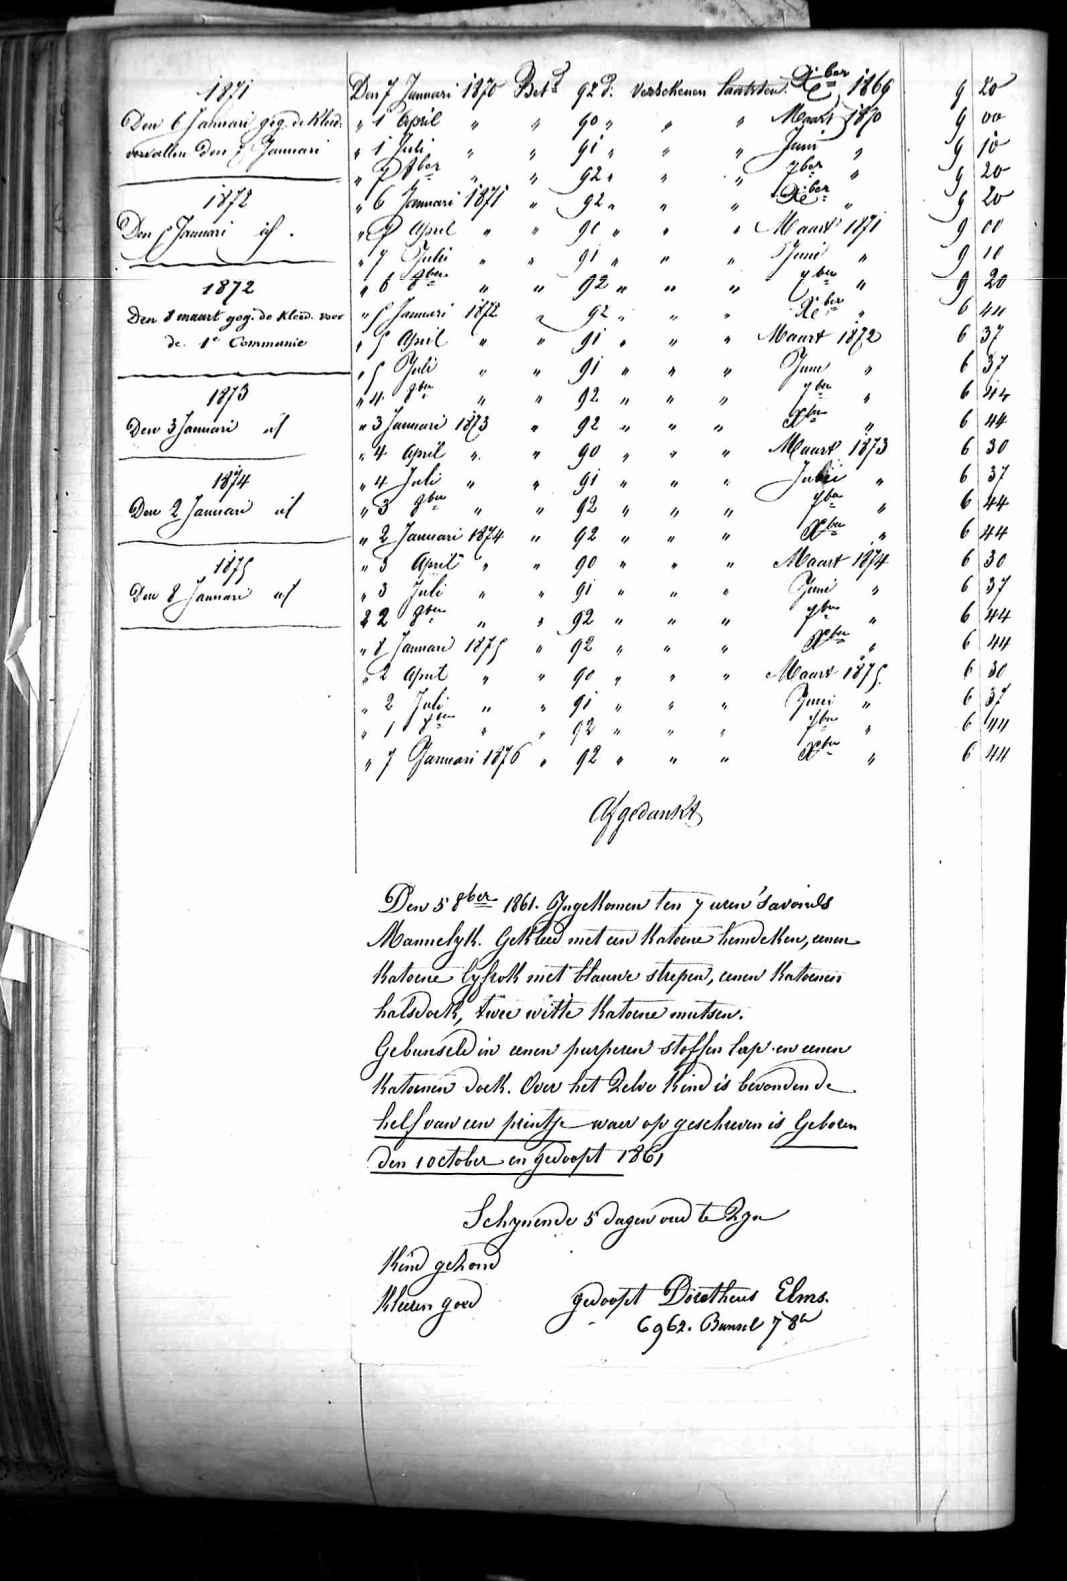 1871
Den 6 Januari geg. de Kleed.
vervallen den 7 Januari
1872
Den 5 Januari id.
1872
Den 8 maart geg. de Kleed. voor
de 1e Communie
1873
Den 3 Januari id
1874
Den 2 Januari id
1875
Den 8 Januari id
Den 7 Januari 1870 Betd 92 d. verschenen laatsten Xber 1869 9 20
" 1 April " " 90 " " " Maart 1870 9 00
" 1 Juli " " 91 " " " Juni " 9 10
" 7 8ber " " 92 " " " 7ber " 9 20
" 6 Januari 1871 " 92 " " " Xber " 9 20
" 7 April " " 90 " " " Maart 1871 9 00
" 7 Juli " " 91 " " " Juni " 9 10
" 6 8ber " " 92 " " " 7ber " 9 20
" 5 Januari 1872 " 92 " " " Xber " 6 44
" 5 April " " 91 " " " Maart 1872 6 37
" 5 Juli " " 91 " " " Juni " 6 37
" 4 8ber " " 92 " " " 7ber " 6 44
" 3 Januari 1873 " 92 " " " Xber " 6 44
" 4 April " " 90 " " " Maart 1873 6 30
" 4 Juli " " 91 " " " Juni " 6 37
" 3 8ber " " 92 " " " 7ber " 6 44
" 2 Januari 1874 " 92 " " " Xber " 6 44
" 3 April " " 90 " " " Maart 1874 6 30
" 3 Juli " " 91 " " " Juni " 6 37
" 2 8ber " " 92 " " " 7ber " 6 44
" 8 Januari 1875 " 92 " " " Xber " 6 44
" 2 April " " 90 " " " Maart 1875 6 30
" 2 Juli " " 91 " " " Juni " 6 37
" 1 7ber " " 92 " " " 7ber " 6 44
" 7 Januari 1876 " 92 " " " Xber " 6 44
Afgedankt
Den 5 8ber 1861. Ingekomen ten 7 uren 'savonds
Mannelyk. Gekleed met een Katoene hemdeken, eenen
Katoene lyfrok met blauwe strepen, eenen Katoenen
halsdoek, twee witte Katoene mutsen.
Gebunseld in eenen purperen stoffen lap en eenen
Katoenen doek. Over het Zelve Kind is bevonden de
helf van een printje waer op geschreven is Geboren
den 1 october en gedoopt 1861
Schynende 5 dagen oud te Zyn
Kind gezond
Kleeren goed gedoopt Dorotheus Elms.
6962. Bunsel 78